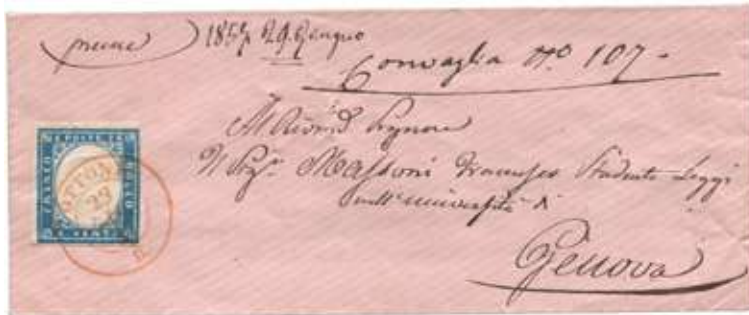 preme
1857 29 Giugno
Convaglia No 107 -
Signore
Il Sigr. Massoni Francesco Studente Leggi
nell'università di
Genova
FRANCO
BOLLO
29